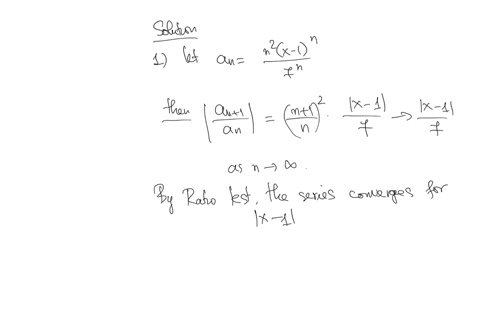 Solution
1) let an = n²(x-1)ⁿ / 7ⁿ
then |an+1 / an| = (n+1 / n)² · |x-1| / 7 → |x-1| / 7
as n → ∞.
By Ratio test, the series converges for
|x-1|